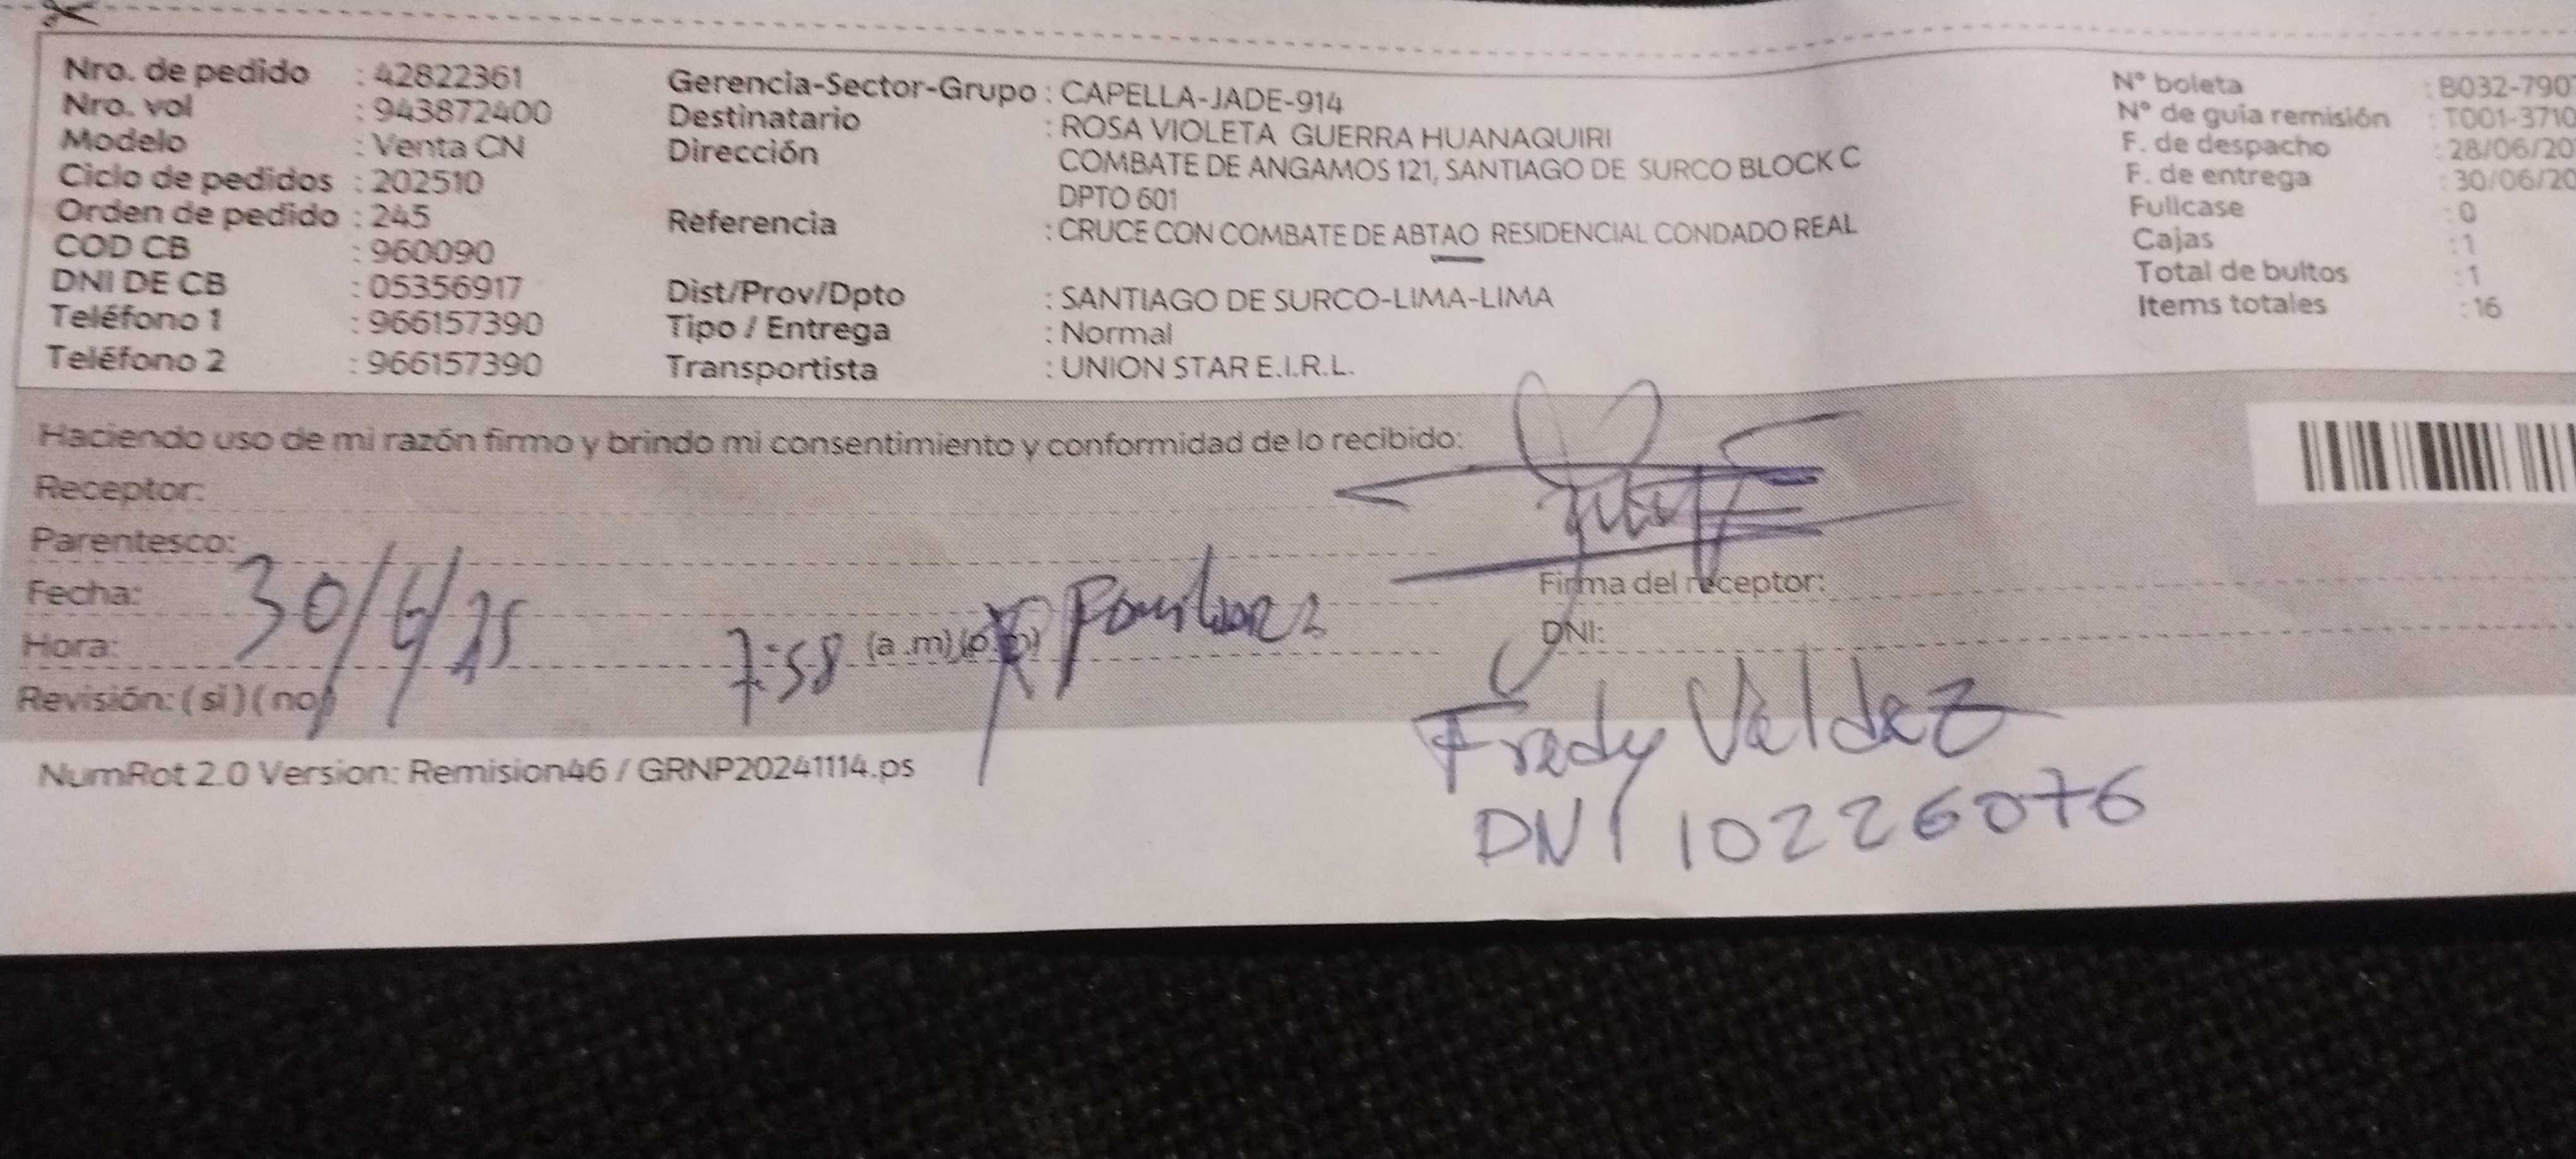 Nro. de pedido : 42822361
Nro. vol : 943872400
Modelo : Venta CN
Ciclo de pedidos : 202510
Orden de pedido : 245
COD CB : 960090
DNI DE CB : 05356917
Teléfono 1 : 966157390
Teléfono 2 : 966157390
Gerencia-Sector-Grupo : CAPELLA-JADE-914
Destinatario : ROSA VIOLETA GUERRA HUANAQUIRI
Dirección COMBATE DE ANGAMOS 121, SANTIAGO DE SURCO BLOCK C
DPTO 601
Referencia : CRUCE CON COMBATE DE ABTAO RESIDENCIAL CONDADO REAL
Dist/Prov/Dpto : SANTIAGO DE SURCO-LIMA-LIMA
Tipo / Entrega : Normal
Transportista : UNION STAR E.I.R.L.
N° boleta : B032-790
N° de guía remisión : T001-3710
F. de despacho : 28/06/20
F. de entrega : 30/06/20
Fullcase : 0
Cajas : 1
Total de bultos : 1
Items totales : 16
Haciendo uso de mi razón firmo y brindo mi consentimiento y conformidad de lo recibido:
Receptor:
Parentesco:
Fecha: 30/6/25
Hora: 7:58 (a.m) (p.m)
Revisión: (si) (no)
Firma del receptor:
DNI:
Fredy Valdez
DNI 10226076
NumRot 2.0 Version: Remision46 / GRNP20241114.ps